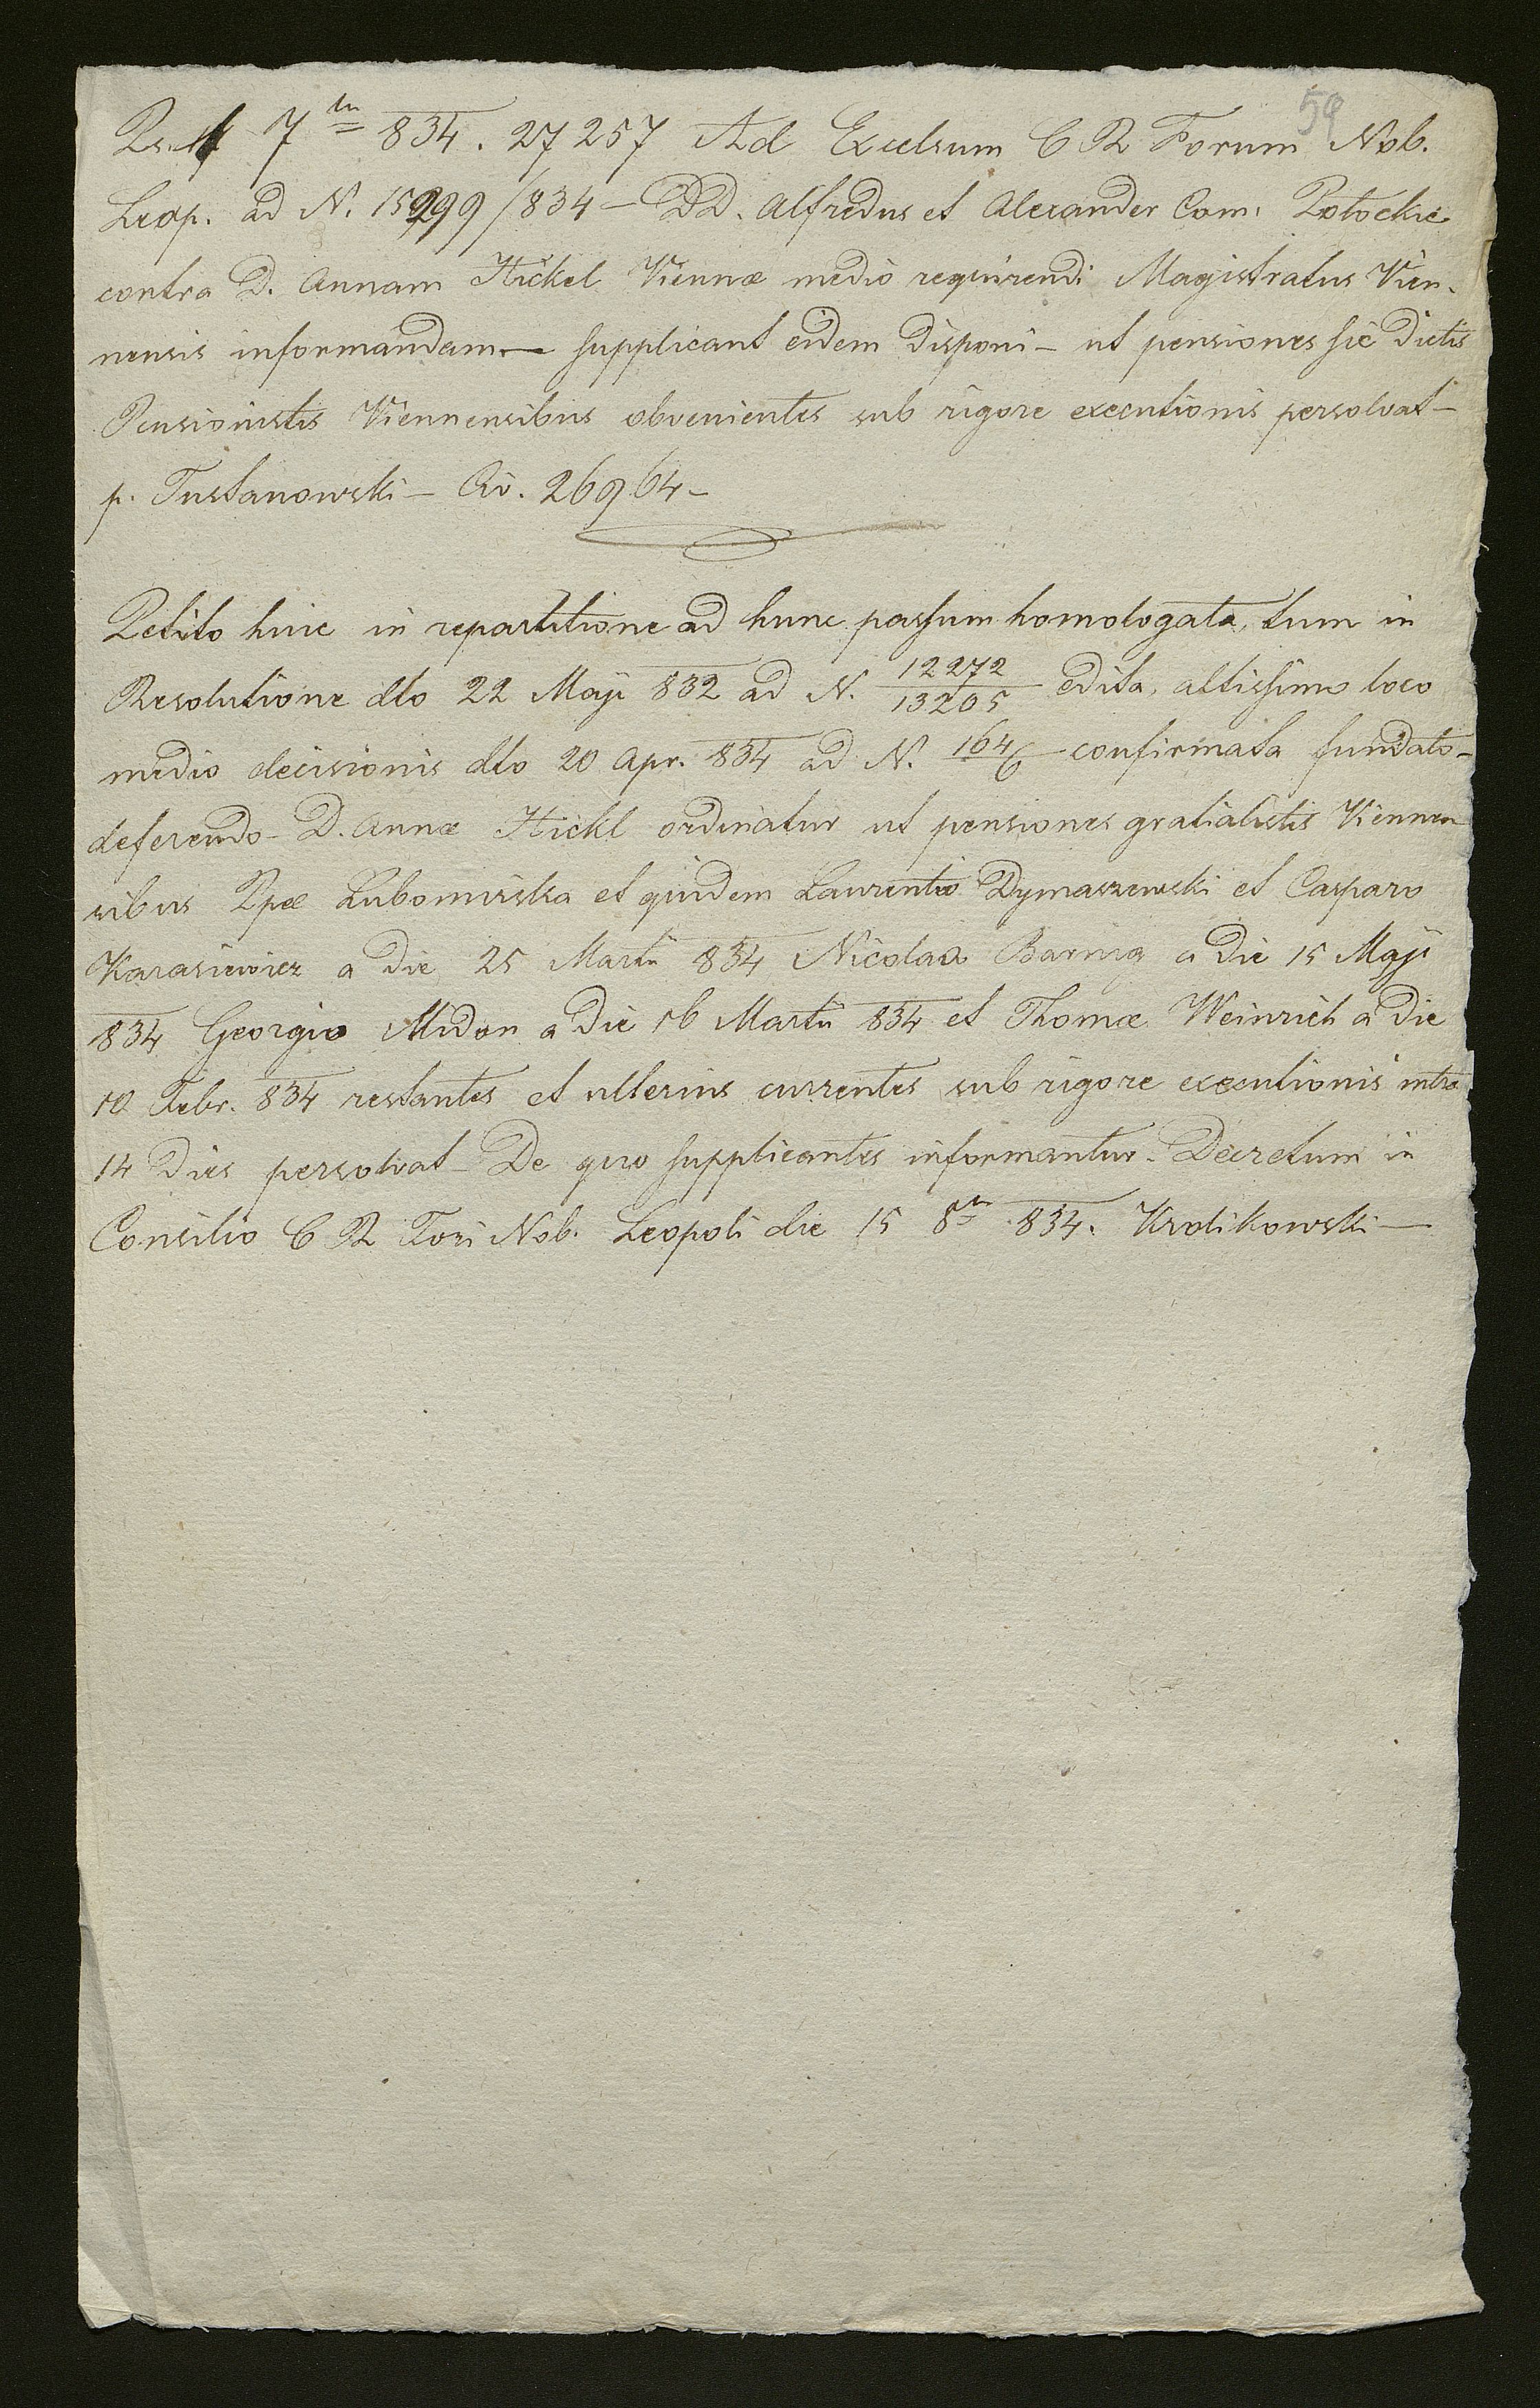 59
7 br 834. 27257 Ad Excelsum C R Forum Nob.
Leop. ad N. 15999/834 – DD. Alfredus et Alexander Com: Potockie
contra D. Annam Hickel Viennæ medio requirendi Magistratus Vien-
nensis informandam – supplicant eidem disponi – ut pensiones sic dictis
Pensionistis Viennensibus obvenientes sub rigore executionis persolvat –
p. Tustanowski – Civ. 26964 –
Petito huic in repartitione ad hunc passum homologata, tum in
Resolutione dto 22 Maji 832 ad N. 12272/13205 edita, altissimo loco
medio decisionis dto 20 Apr. 834 ad N. 1646 confirmata fundato –
deferendo – D. Annæ Hickl ordinatur ut pensiones gratialistis Viennen
sibus Ppæ Lubomirska et quidem Laurentio Dymaszewski et Casparo
Karasiewicz a die 25 Martii 834 Nicolao Barnig a die 15 Maji
834 Georgio Midon a die 16 Martii 834 et Thomæ Weinrich a die
10 Febr. 834 restantes et ulterius currentes sub rigore executionis intra
14 dies persolvat – De quo supplicantes informantur – Decretum in
Consilio C R Fori Nob. Leopoli die 15 8br 834. Krolikowski –